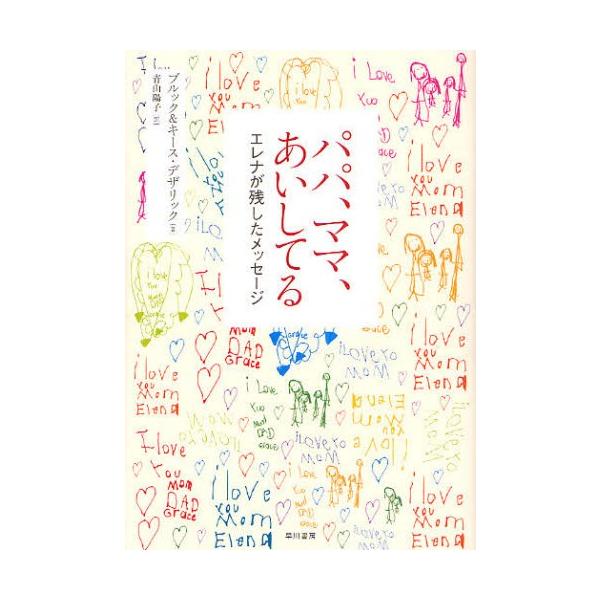 パパ、ママ、
あいしてる
エレナが残したメッセージ
ブルック&キース・デザリック[著]
青山陽子[訳]
I Love
You
i love
You
Mom
Elena
i love
you
Mom
Elena
I love
Mom
DAD
Grace
iLoveYo
MoM
i love
you
Mom
Elena
i Love
You
Mom
DAD
Grace
Elena
Mom
You
i love
iLoveYo
MoM
I love
You
Mom
DAD
Grace
i love
you
Mom
Elena
i Love
You
Mom
DAD
Grace
i love
you
Mom
Elena
早川書房